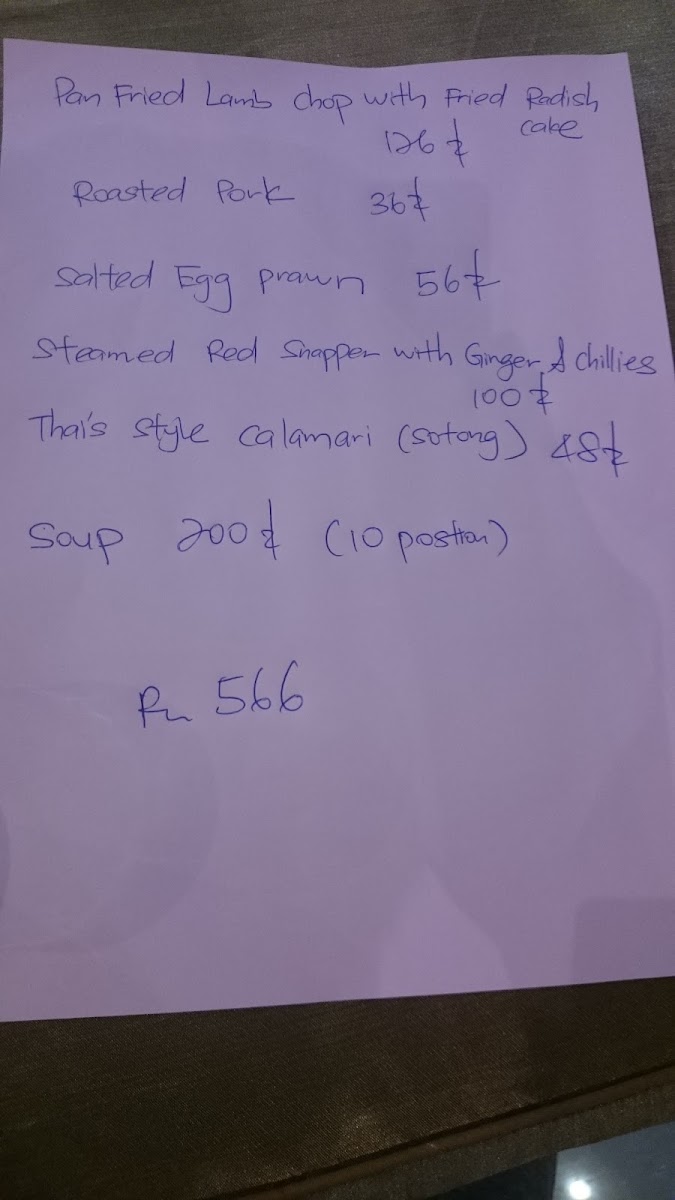 Pan Fried Lamb chop with Fried Radish
cake
126 ⁄z
Roasted Pork 36 ⁄z
Salted Egg prawn 56 ⁄z
Steamed Red Snapper with Ginger & chillies
100 ⁄z
Thai's style calamari (sotong) 48 ⁄z
Soup 200 ⁄z (10 postion)
Rm 566